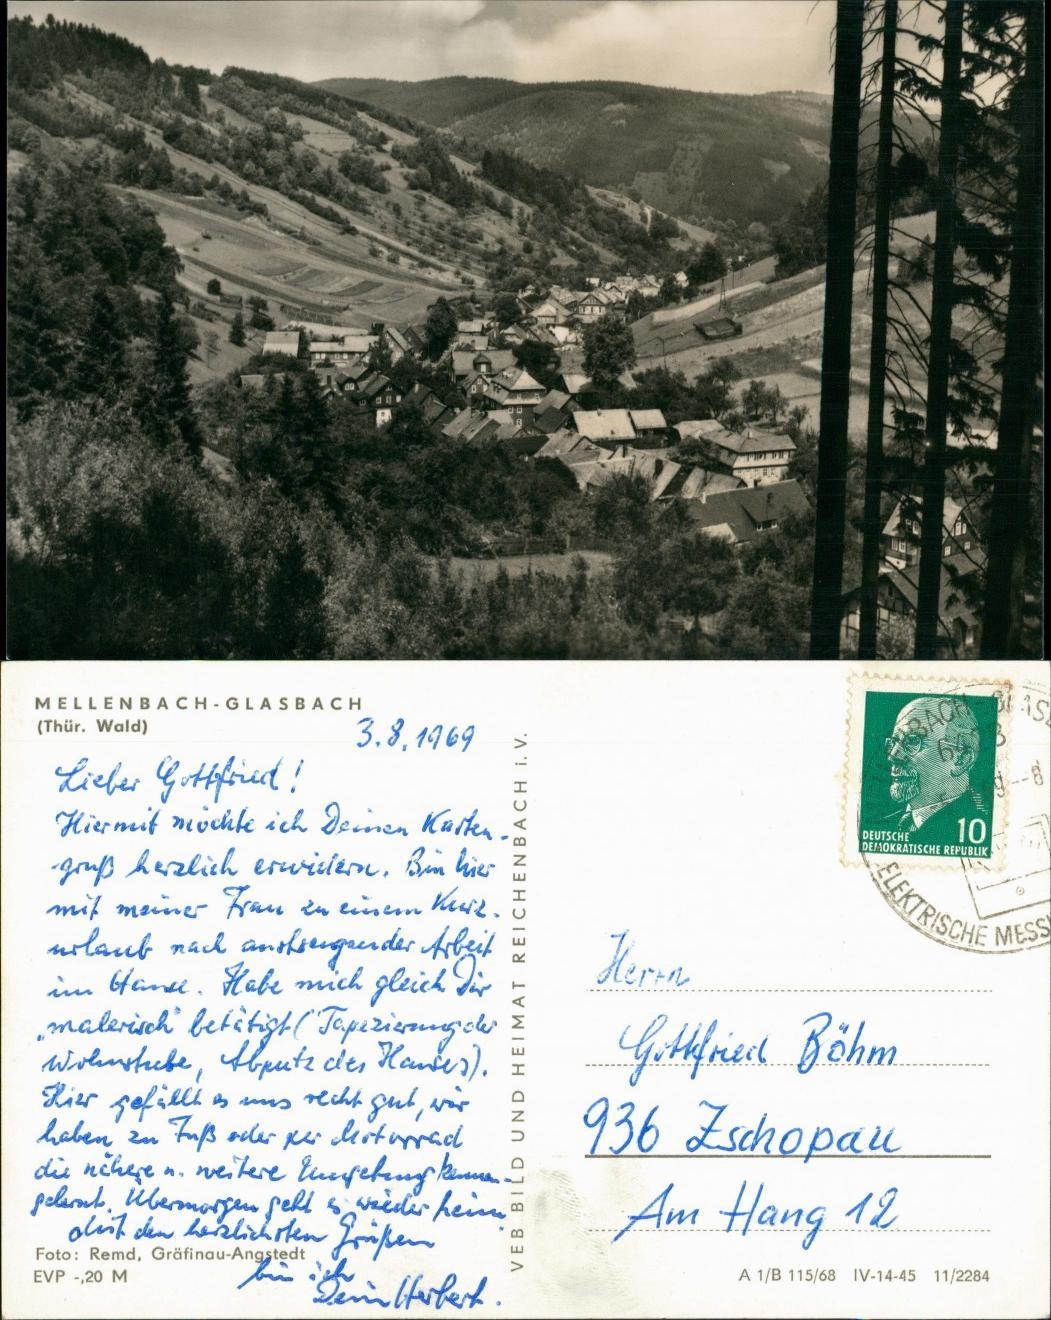 MELLENBACH-GLASBACH
(Thür. Wald)
3.8.1969
Lieber Gottfried!
Hiermit möchte ich Deinen Karten-
gruß herzlich erwidern. Bin hier
mit meiner Frau zu einem Kurz-
urlaub nach anstrengender Arbeit
im Hause. Habe mich gleich Dir
„malerisch" betätigt (Tapezierung der
Wohnstube, Abputz des Hauses).
Hier gefällt es uns recht gut, wir
haben zu Fuß oder per Motorrad
die nähere u. weitere Umgebung kennen-
gelernt. Übermorgen geht es wieder heim.
Mit den herzlichsten Grüßen
bin ich
Dein Herbert.
Foto: Remd, Gräfinau-Angstedt
EVP -,20 M
VEB BILD UND HEIMAT REICHENBACH i.V.
10
DEUTSCHE
DEMOKRATISCHE REPUBLIK
ELEKTRISCHE MESS
Herrn
Gottfried Böhm
936 Zschopau
Am Hang 12
A 1/B 115/68 IV-14-45 11/2284